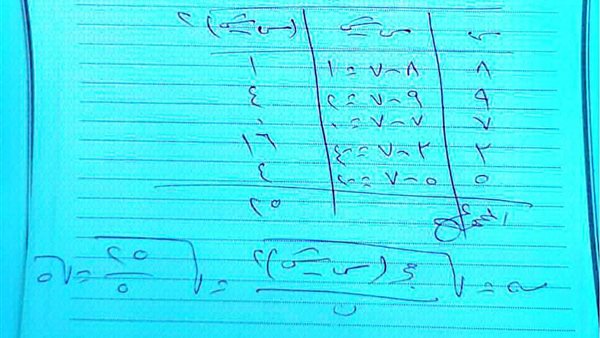 س س - س̄ (س - س̄)٢
٨ ٨ - ٧ = ١ ١
٩ ٩ - ٧ = ٢ ٤
٧ ٧ - ٧ = ٠ ٠
٣ ٣ - ٧ = -٤ ١٦
٥ ٥ - ٧ = -٢ ٤
المجموع ٢٥
σ = √(مجـ(س - س̄)٢ / ن) = √(٢٥ / ٥) = √٥